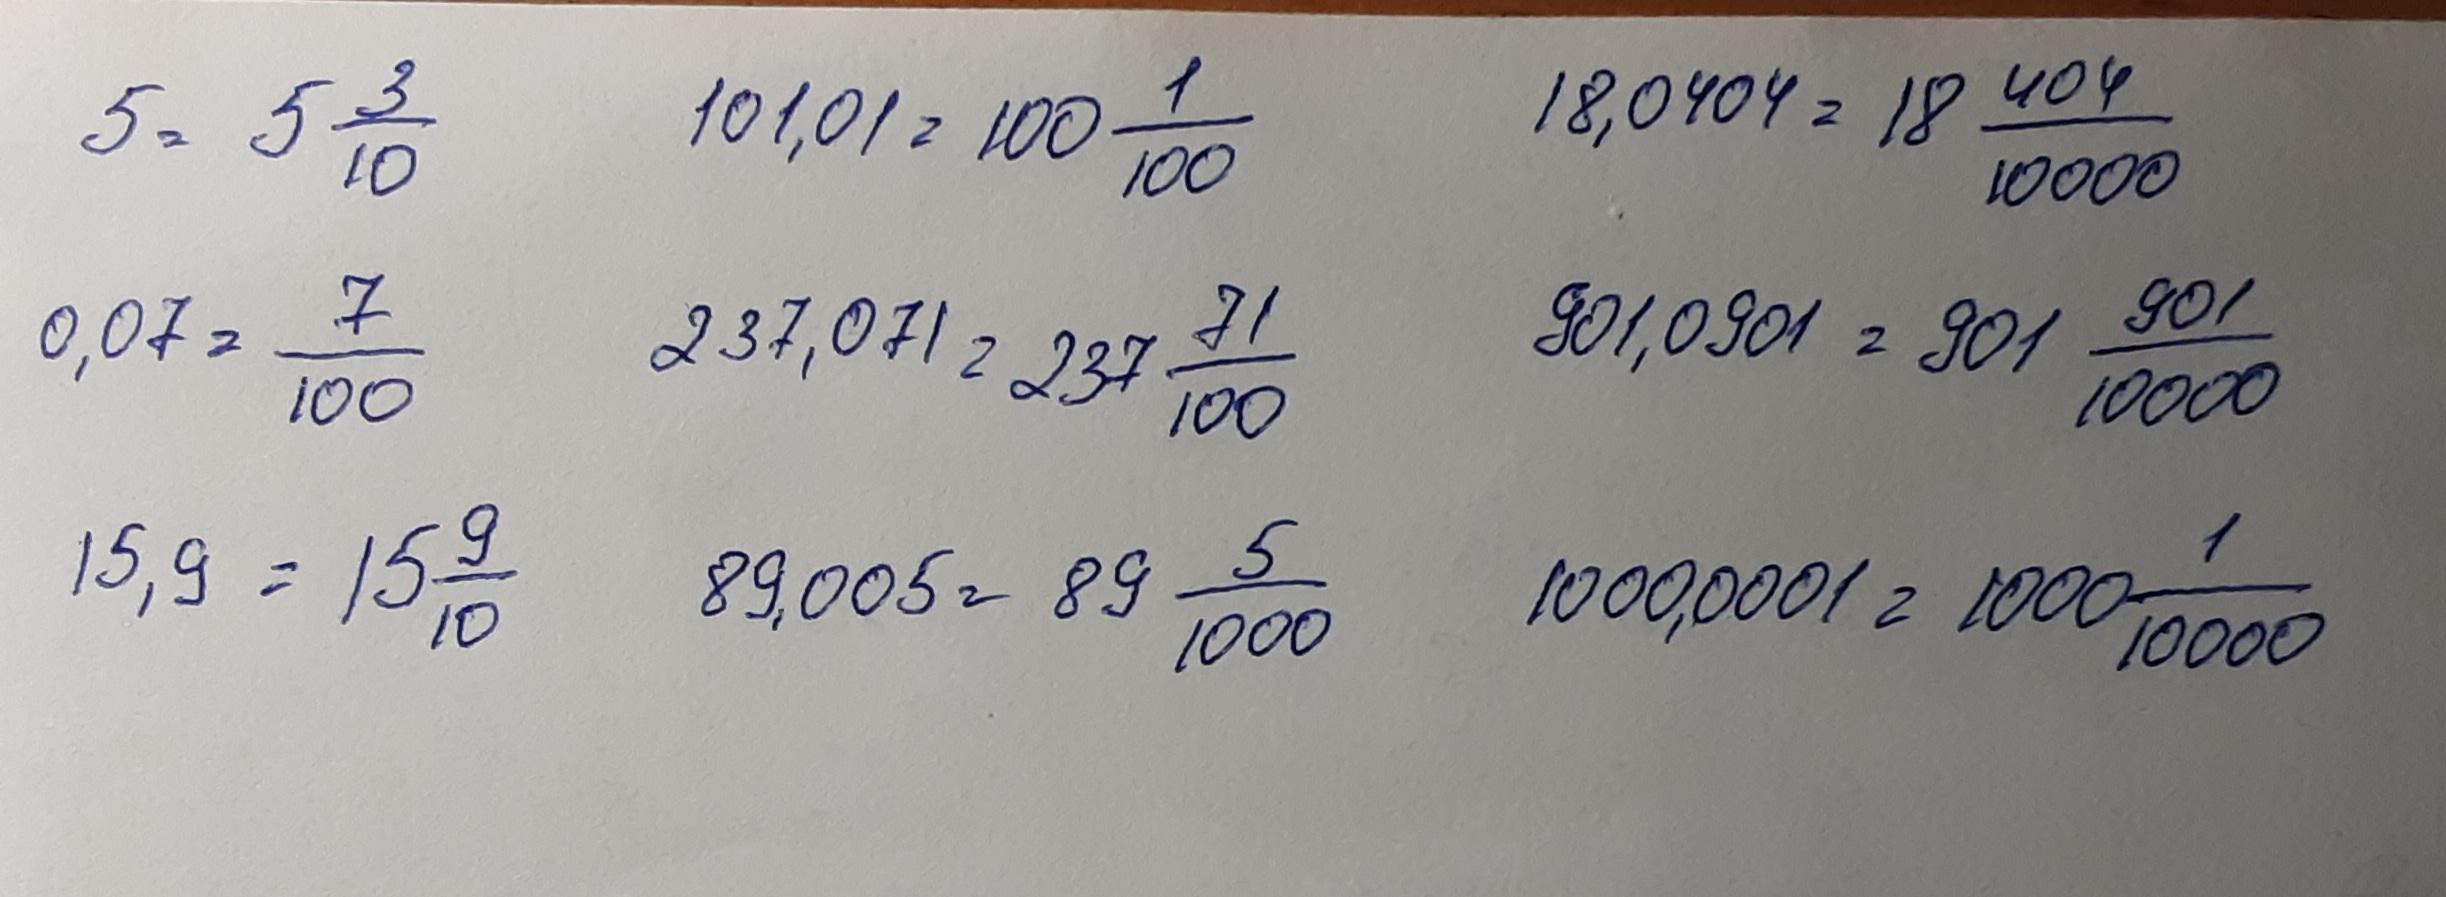 5 = 5 3/10    101,01 = 100 1/100    18,0404 = 18 404/10000
0,07 = 7/100    237,071 = 237 71/100    901,0901 = 901 901/10000
15,9 = 15 9/10    89,005 = 89 5/1000    1000,0001 = 1000 1/10000